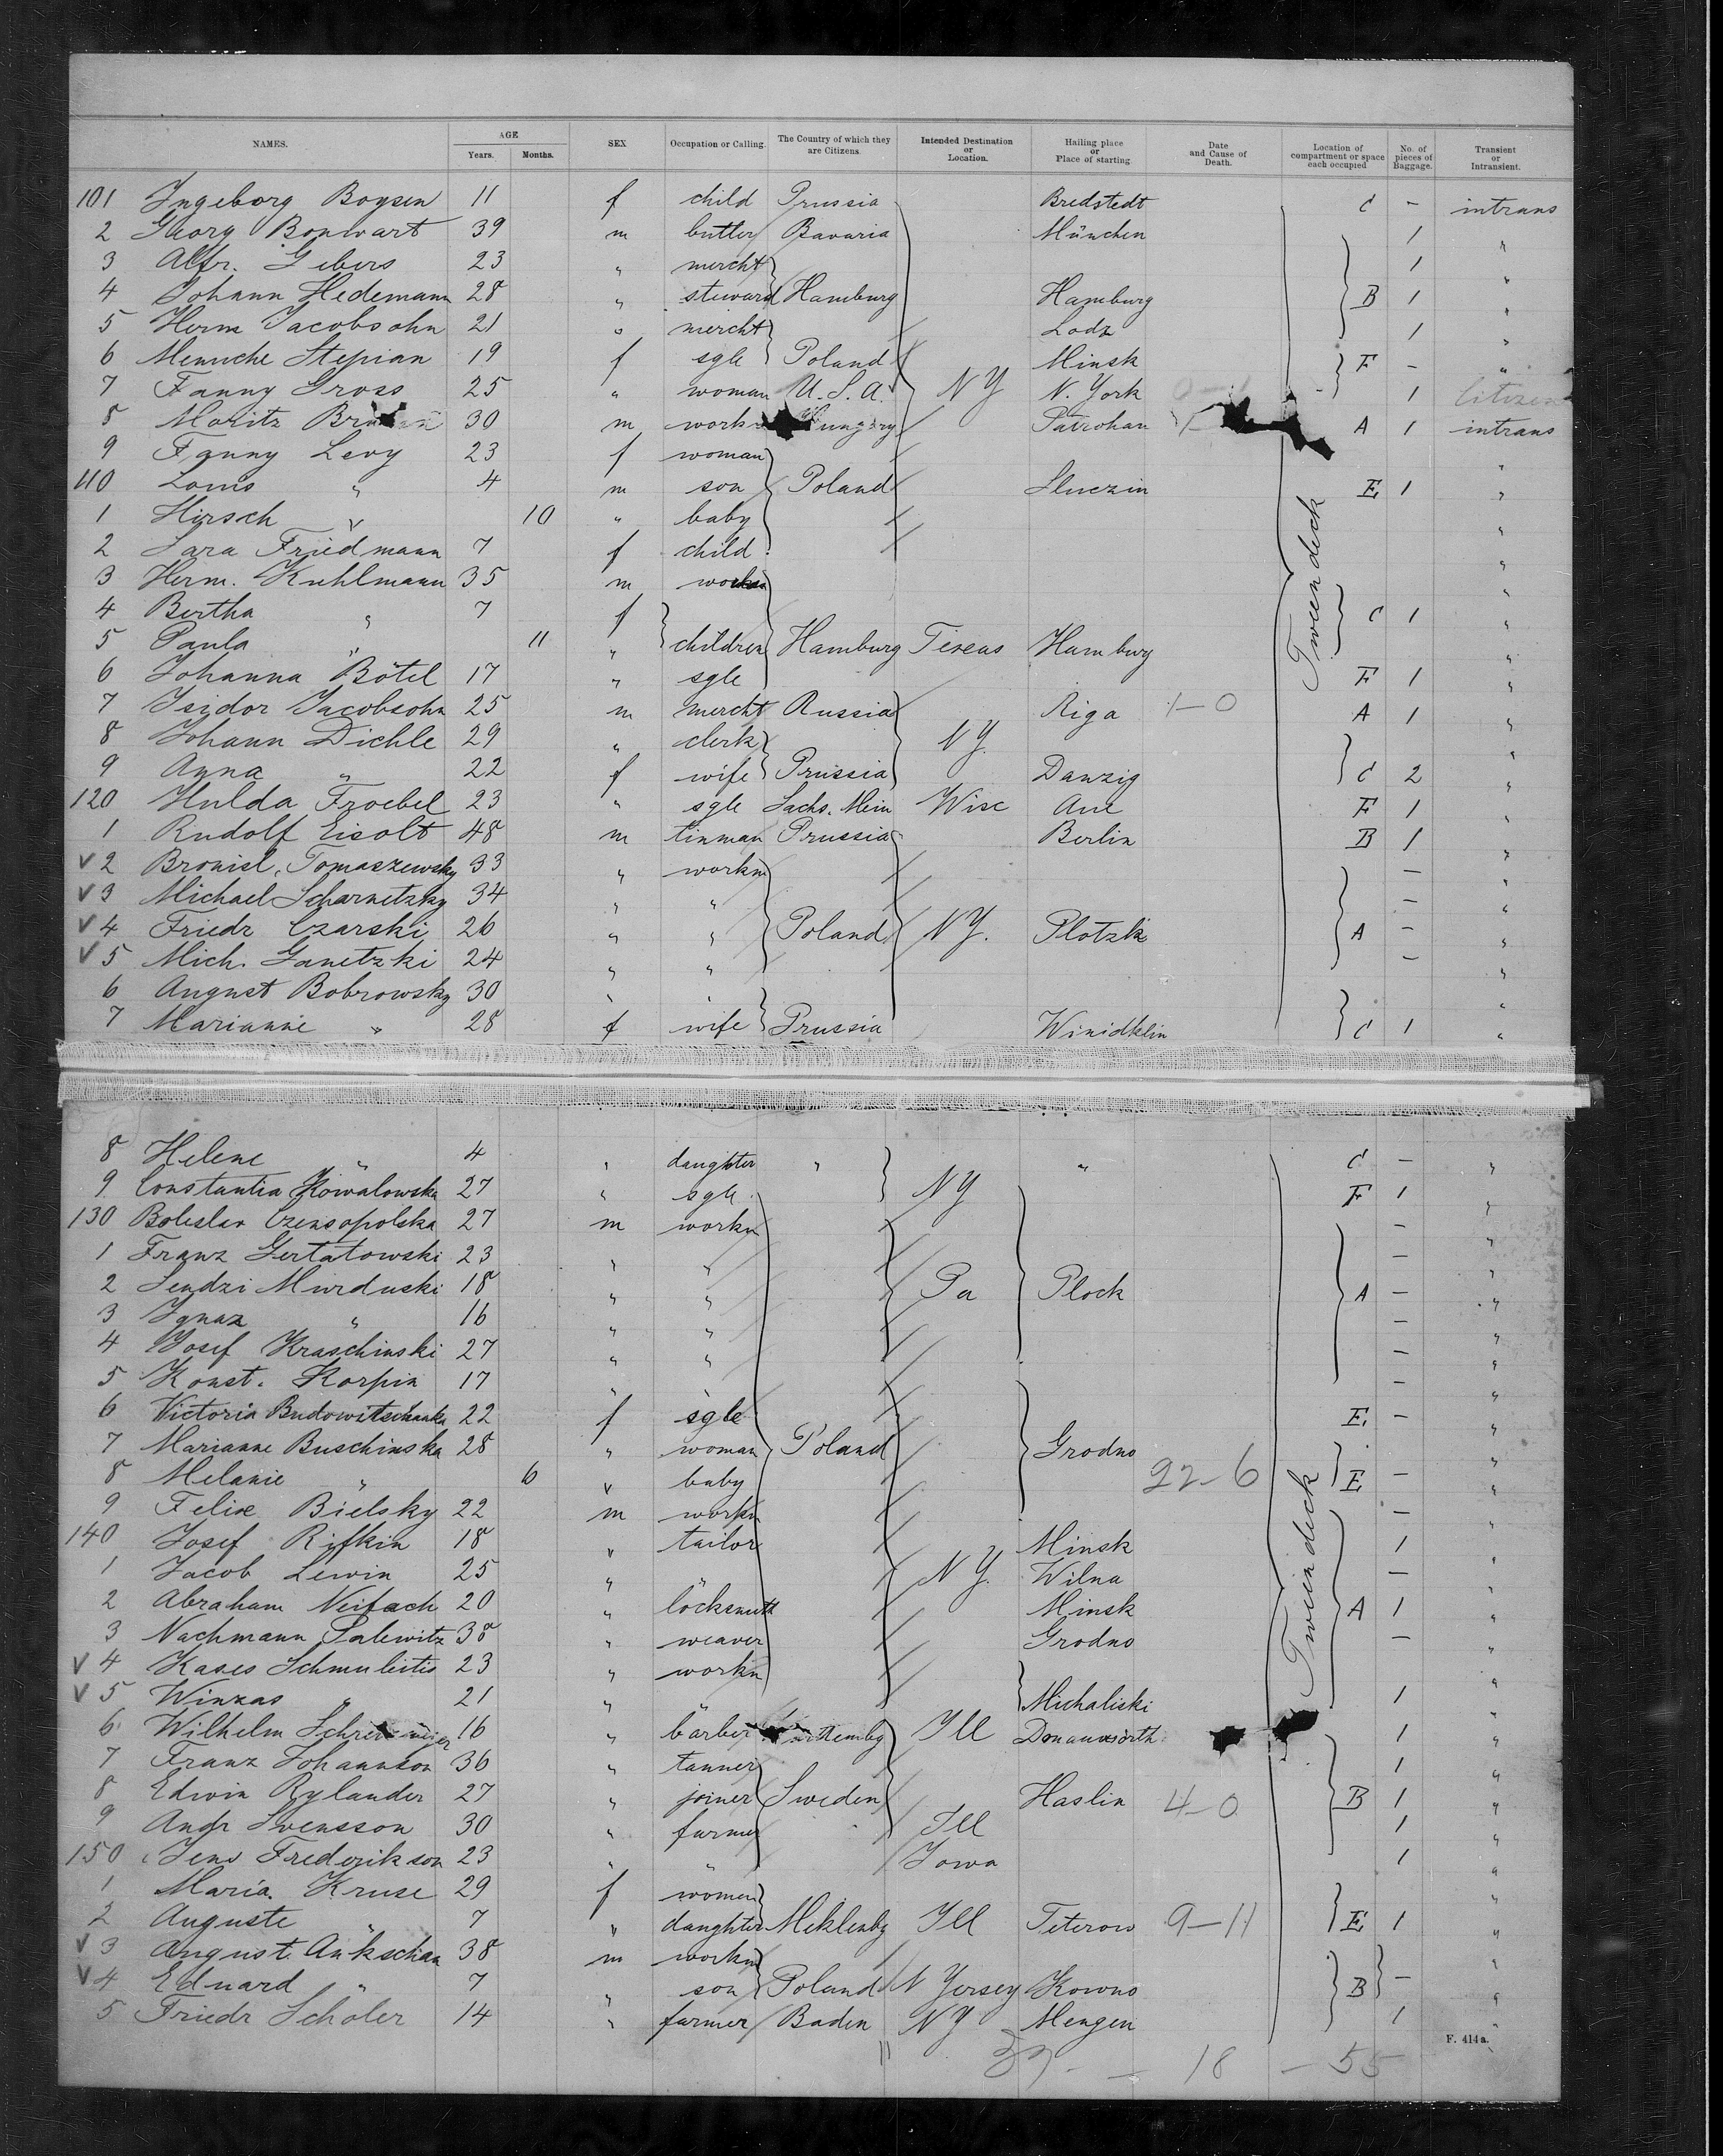 NAMES. AGE Years. Months. SEX Occupation or Calling. The Country of which they are Citizens. Intended Destination or Location. Hailing place or Place of starting. Date and Cause of Death. Location of compartment or space each occupied No. of pieces of Baggage. Transient or Intransient.
101 Ingeborg Boysen 11 f child Prussia Bredstedt C – intrans
2 Georg Bonwart 39 m butler Bavaria München 1 "
3 Alfr. Gebers 23 " mercht 1 "
4 Johann Hedemann 28 " steward Hamburg Hamburg B 1 "
5 Herm Jacobsohn 21 " mercht Lodz 1 "
6 Menuche Stepian 19 f sgle Poland Minsk F – "
7 Fanny Gross 25 " woman U.S.A. NY N. York 1 Citizen
8 Moritz 30 m Patrohan A 1 intrans
9 Fanny Levy 23 f woman "
110 Louis " 4 m son Poland Stuczin E 1 "
1 Hirsch " 10 " baby "
2 Sara Friedmann 7 f child "
3 Herm. Kuhlmann 35 m workm "
4 Bertha " 7 f C 1 "
5 Paula " 11 " children Hamburg Texas Hamburg "
6 Johanna Bötel 17 " sgle F 1 "
7 Isidor Jacobsohn 25 m mercht Russia Riga 1–0 A 1 "
8 Johann Dichle 29 " clerk NY. "
9 Anna " 22 f wife Prussia Danzig C 2 "
120 Hulda Froebel 23 " sgle Sachs. Mein Wisc Aue F 1 "
1 Rudolf Eisolt 48 m tinman Prussia Berlin B 1 "
V 2 Bronisl. Tomaszewsky 33 " workm – "
V 3 Michael Scharnetzky 34 " " – "
V 4 Friedr Czarski 26 " " Poland NY. Plotzk A – "
V 5 Mich. Ganetzki 24 " " – "
6 August Bobrowsky 30 " " "
7 Marianne " 28 f wife Prussia Winidklin C 1 "
Tweendeck
8 Helene " 4 " daughter " NY " C – "
9 Constantia Kowalowska 27 " sgle F 1 "
130 Boleslav Czensopolska 27 m workm – "
1 Franz Gertatowski 23 " " – "
2 Sendzi Murduski 18 " " Pa Plock A – "
3 Ignaz " 16 " " – "
4 Josef Kraschinski 27 " " – "
5 Konst. Korpin 17 " " – "
6 Victoria Budowitschanka 22 f sgle E – "
7 Marianne Buschinska 28 " woman Poland Grodno "
8 Melanie " 6 " baby 22–6 E – "
9 Felix Bielsky 22 m workm – "
140 Josef Rifkin 18 " tailor Minsk 1 "
1 Jacob Lewin 25 " " NY. Wilna – "
2 Abraham Neifach 20 " locksmith Minsk A 1 "
3 Nachmann Salewitz 38 " weaver Grodno – "
V 4 Kases Schmuleitis 23 " workm "
V 5 Winzas " 21 " Michaliski 1 "
6 Wilhelm 16 " barber Ill Donauwörth 1 "
7 Franz Johannson 36 " tanner 1 "
8 Edwin Rylander 27 " joiner Sweden Haslin 4–0 B 1 "
9 Andr Svensson 30 " farmer Ill 1 "
150 Jens Frederikson 23 " " Iowa 1 "
1 Maria Kruse 29 f woman "
2 Auguste " 7 " daughter Meklenbg Ill Teterow 9–11 E 1 "
V 3 August Ankschan 38 m workm "
V 4 Eduard " 7 " son Poland N Yersey Kowno B – "
5 Friedr Scholer 14 " farmer Baden NY Mengen 1 "
Tweendeck
F. 414a.
37 – – 18 – 55